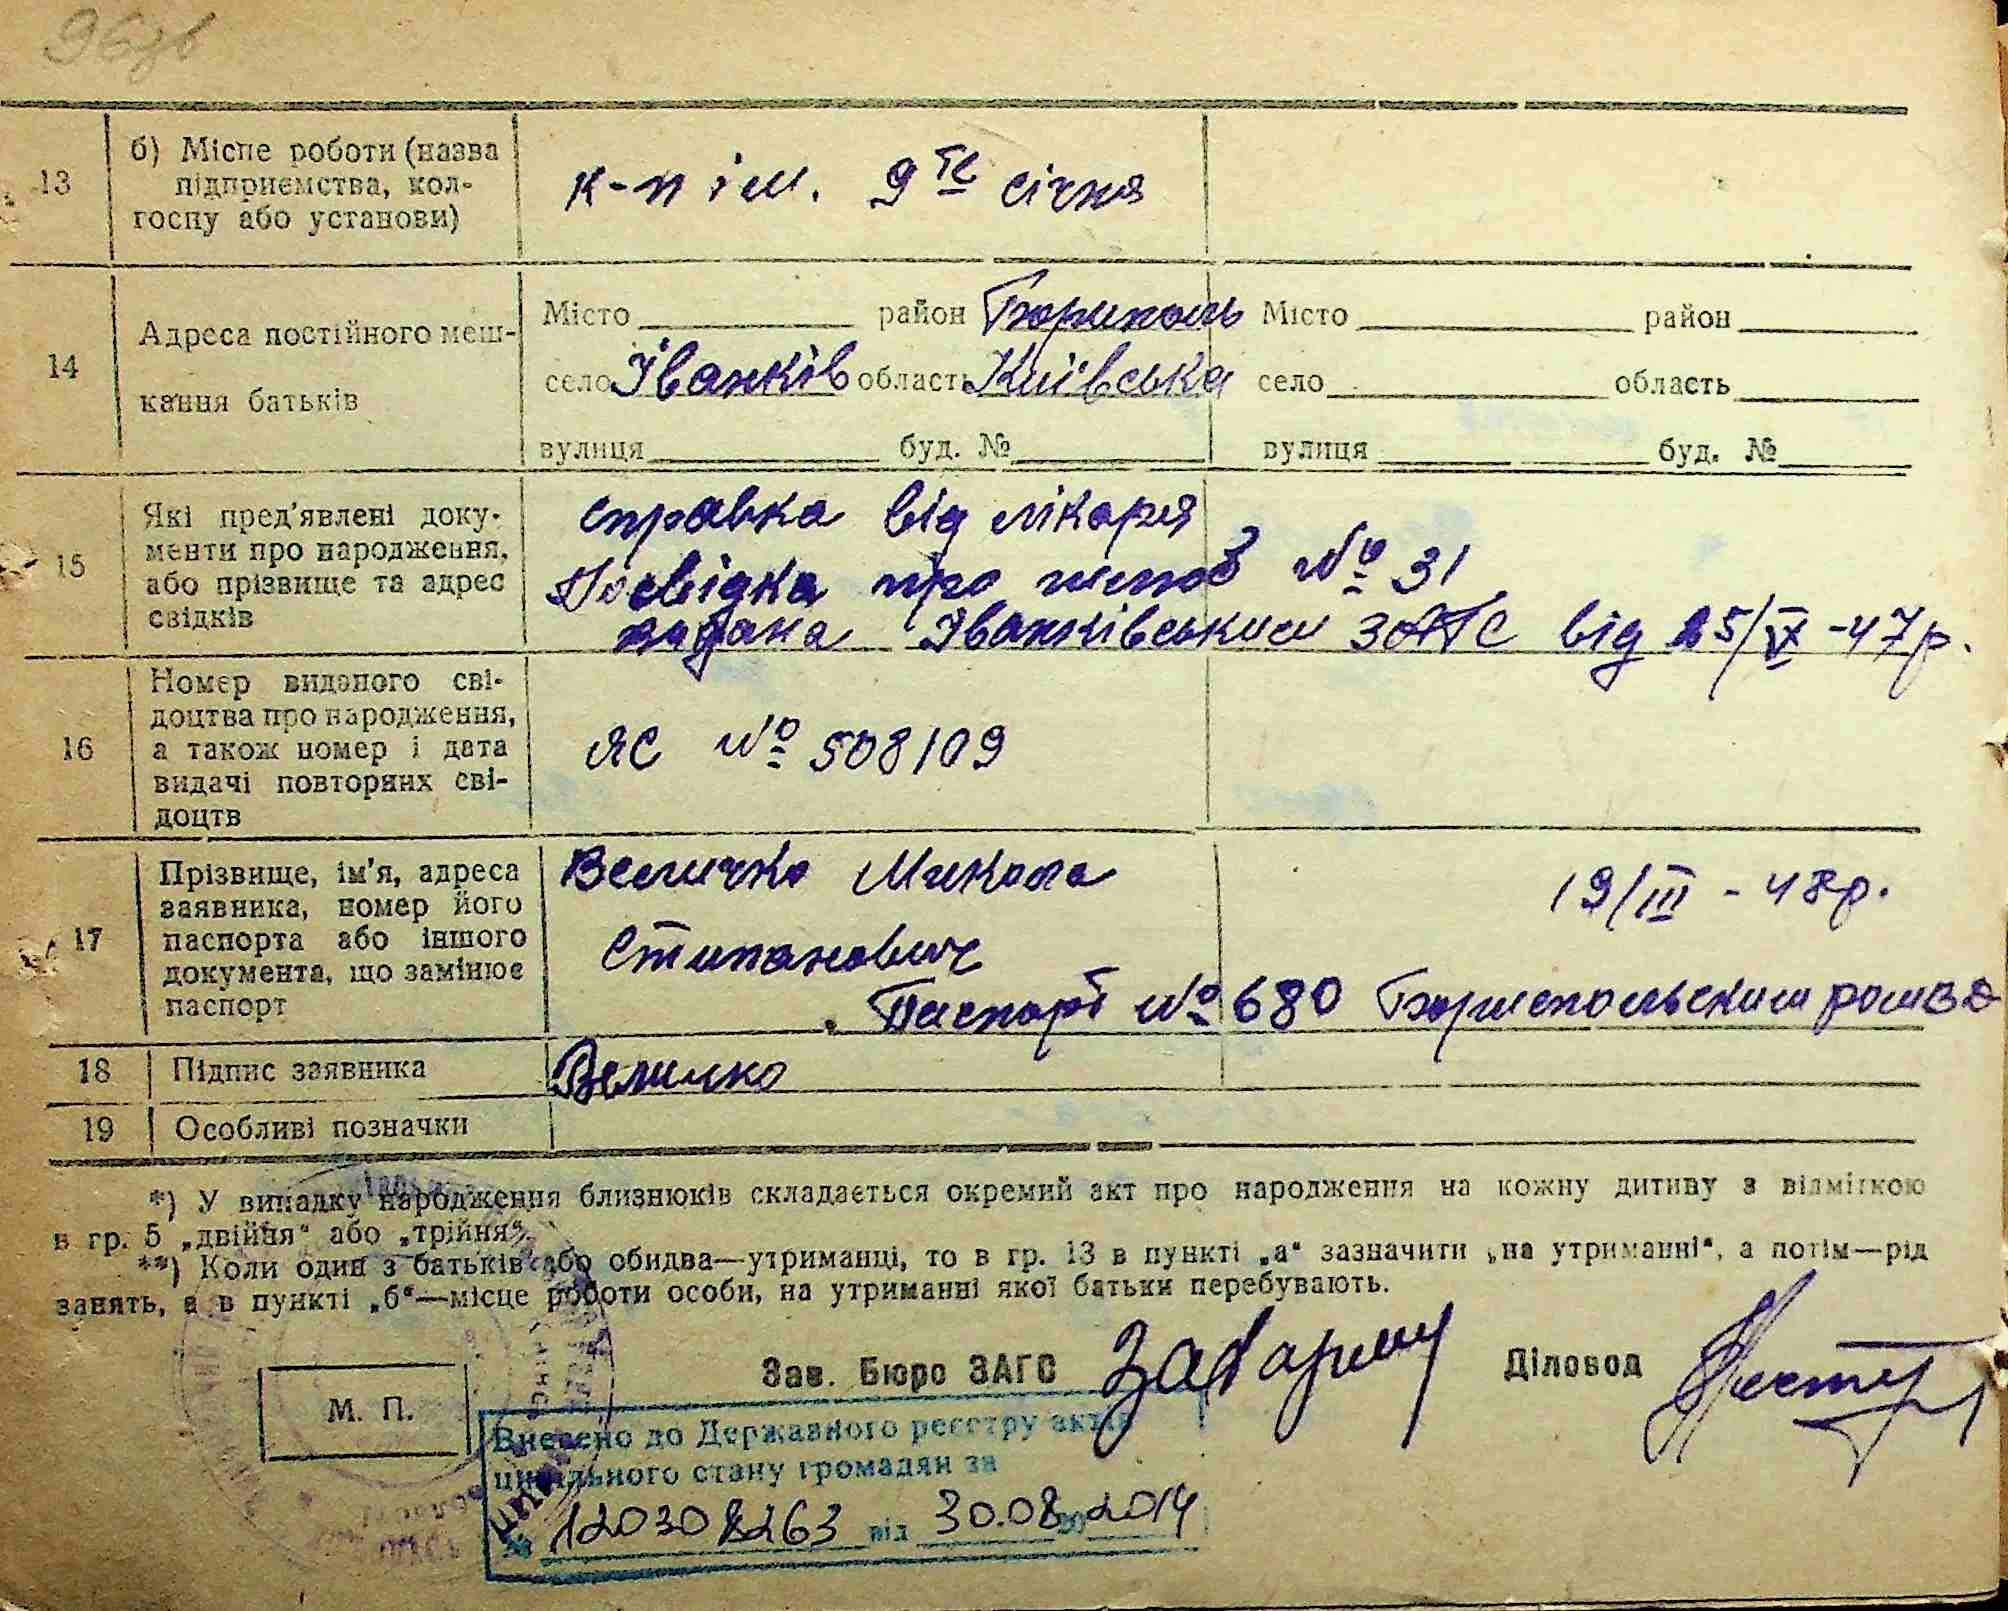 96зв
13 б) Місце роботи (назва
підприємства, кол-
госпу або установи)
к-п ім. 9те січня
14 Адреса постійного меш-
кання батьків
Місто район Бориполь Місто район
село Іванків область Київська село область
вулиця буд. № вулиця буд. №
15 Які пред'явлені доку-
менти про народження,
або прізвище та адрес
свідків
справка від лікаря
Посвідка про шлюб № 31
видана Іванківським ЗАГС від 25/V-47р.
16 Номер виданого сві-
доцтва про народження,
а також номер і дата
видачі повторних сві-
доцтв
ЯС № 508109
17 Прізвище, ім'я, адреса
заявника, номер його
паспорта або іншого
документа, що замінює
паспорт
Величко Микола
Стипанович
19/III - 48р.
Паспорт № 680 Бориспольским
18 Підпис заявника Величко
19 Особливі позначки
*) У випадку народження близнюків складається окремий акт про народження на кожну дитину з відміткою
в гр. 5 „двійня“ або „трійня“.
**) Коли один з батьків або обидва—утриманці, то в гр. 13 в пункті „а“ зазначити „на утриманні“, а потім—рід
занять, а в пункті „б“—місце роботи особи, на утриманні якої батьки перебувають.
Зав. Бюро ЗАГС Діловод
М. П.
Внесено до Державного реєстру актів
цивільного стану громадян за
№ 120308263 від 30.08 2014